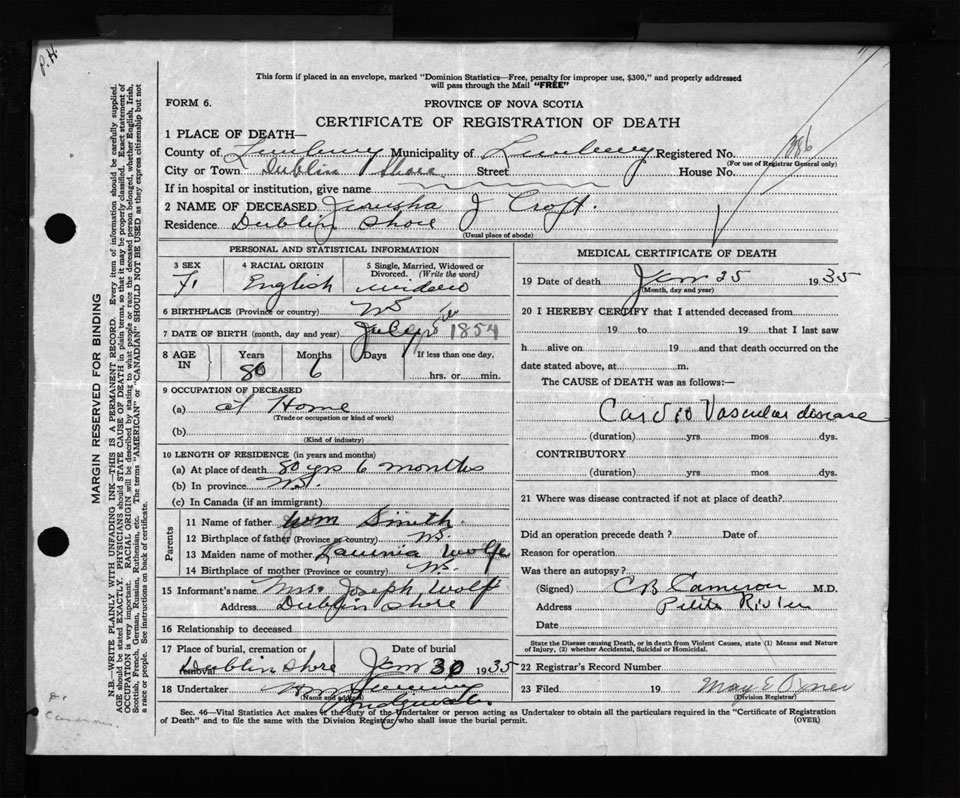 P.H.
This form if placed in an envelope, marked "Dominion Statistics—Free, penalty for improper use, $300," and properly addressed
will pass through the Mail "FREE"
FORM 6.
PROVINCE OF NOVA SCOTIA
CERTIFICATE OF REGISTRATION OF DEATH
1 PLACE OF DEATH—
County of Lunenburg Municipality of Lunenburg Registered No. 386
(For use of Registrar General only)
City or Town Dublin Shore Street House No.
If in hospital or institution, give name
2 NAME OF DECEASED Jerusha J Croft.
Residence Dublin Shore
(Usual place of abode)
PERSONAL AND STATISTICAL INFORMATION
3 SEX 4 RACIAL ORIGIN 5 Single, Married, Widowed or Divorced. (Write the word)
F. English widow
6 BIRTHPLACE (Province or country) NS
7 DATE OF BIRTH (month, day and year) July 1854
8 AGE IN Years Months Days If less than one day.
80 6 hrs. or min.
9 OCCUPATION OF DECEASED
(a) at Home
(Trade or occupation or kind of work)
(b)
(Kind of industry)
10 LENGTH OF RESIDENCE (in years and months)
(a) At place of death 80 yrs 6 months
(b) In province NS.
(c) In Canada (if an immigrant)
Parents
11 Name of father Wm Smith.
12 Birthplace of father (Province or country) NS.
13 Maiden name of mother Lavinia Wolfe
14 Birthplace of mother (Province or country) NS.
15 Informant's name Mrs. Joseph Wolf
Address Dublin Shore
16 Relationship to deceased
17 Place of burial, cremation or removal Date of burial
Dublin Shore Jan 30 1935
18 Undertaker
(Name and address)
Bridgewater
MEDICAL CERTIFICATE OF DEATH
19 Date of death Jan 25 1935
(Month, day and year)
20 I HEREBY CERTIFY that I attended deceased from
19 to 19 that I last saw
h alive on 19 and that death occurred on the
date stated above, at m.
The CAUSE of DEATH was as follows:—
Cardio Vascular disease
(duration) yrs mos dys.
CONTRIBUTORY
(duration) yrs mos dys.
21 Where was disease contracted if not at place of death?
Did an operation precede death ? Date of
Reason for operation
Was there an autopsy?
(Signed) CB Cameron M.D.
Address Petite Riviere
Date
State the Disease causing Death, or in death from Violent Causes, state (1) Means and Nature
of Injury, (2) whether Accidental, Suicidal or Homicidal.
22 Registrar's Record Number
23 Filed 19 May E
(Division Registrar)
Sec. 46—Vital Statistics Act makes it the duty of the Undertaker or person acting as Undertaker to obtain all the particulars required in the "Certificate of Registration
of Death" and to file the same with the Division Registrar who shall issue the burial permit. (OVER)
MARGIN RESERVED FOR BINDING
N.B.—WRITE PLAINLY WITH UNFADING INK—THIS IS A PERMANENT RECORD. Every item of information should be carefully supplied.
AGE should be stated EXACTLY. PHYSICIANS should STATE CAUSE OF DEATH in plain terms, so that it may be properly classified. Exact statement of
OCCUPATION is very important. RACIAL ORIGIN will be described by stating to what people or race the deceased person belonged, whether English, Irish,
Scottish, French, German, Russian, Ruthenian, etc. The terms "AMERICAN" or "CANADIAN" SHOULD NOT BE USED as they express citizenship but not
a race or people. See instructions on back of certificate.
Dr.
Cameron